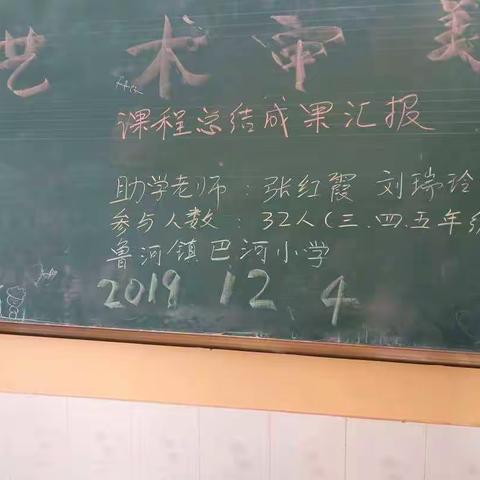 艺术审美
课程总结成果汇报
助学老师：张红霞 刘瑞玲
参与人数：32人(三.四.五年级
鲁河镇巴河小学
2019 12 4